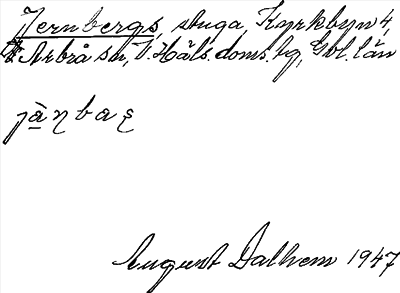 Jernbergs, stuga, Kyrkbyn 4,
Arbrå sn, V. Häls. doms. hg, Gvl. län
jä̀ɳbaʂ
August Dalhem 1947